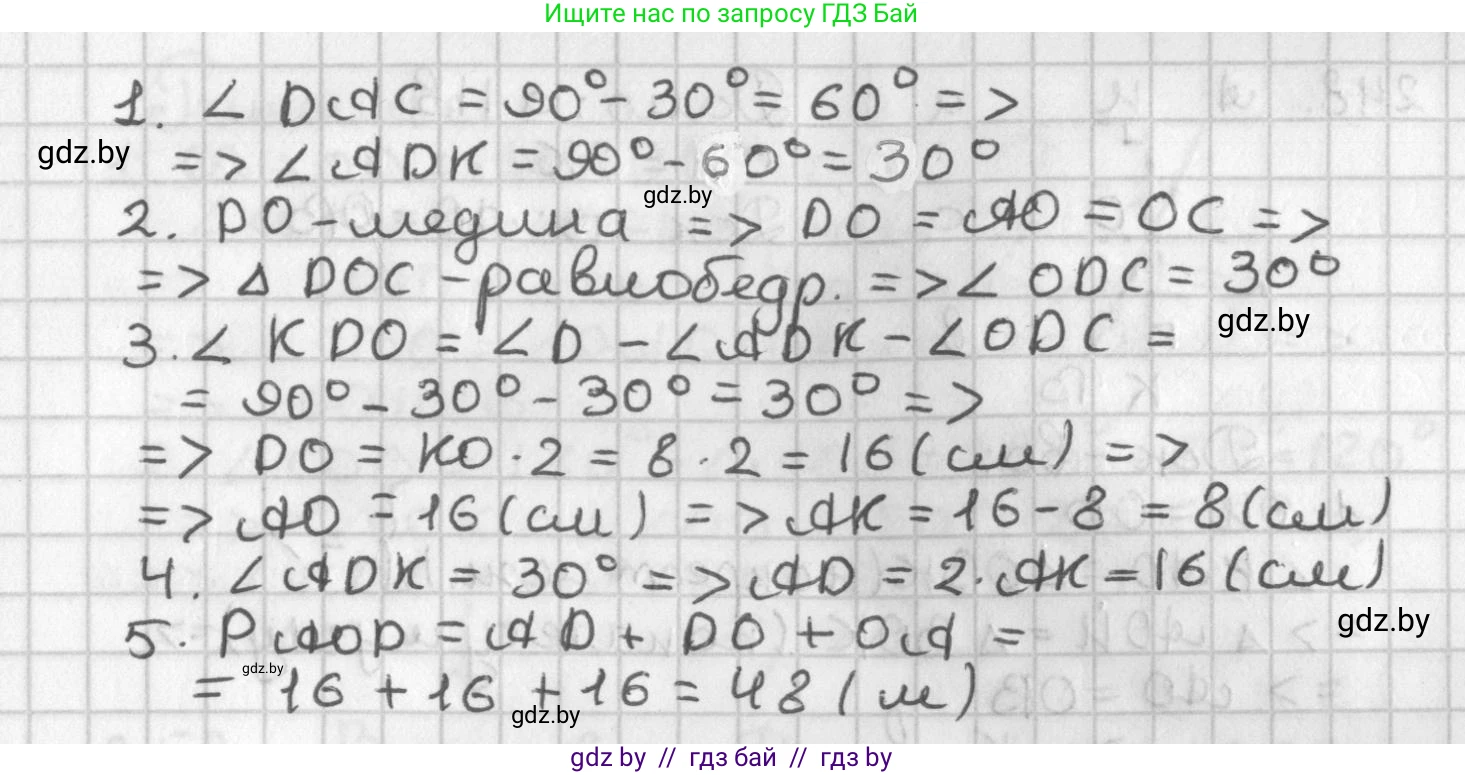 Ищите нас по запросу ГДЗ Бай
1. ∠ DAC = 90° - 30° = 60° =>
gdz.by
=> ∠ ADK = 90° - 60° = 30°
gdz.by
2. DO - медиана => DO = AO = OC =>
=> Δ DOC - равнобедр. => ∠ ODC = 30°
gdz.by
3. ∠ KDO = ∠D - ∠ADK - ∠ODC =
= 90° - 30° - 30° = 30° =>
=> DO = KO · 2 = 8 · 2 = 16 (см) =>
=> AO = 16 (см) => AK = 16 - 8 = 8 (см)
4. ∠ADK = 30° => AD = 2·AK = 16 (см)
gdz.by
5. PAOD = AD + DO + OA =
gdz.by
= 16 + 16 + 16 = 48 (м)
gdz.by
gdz by // гдз бай // гдз by